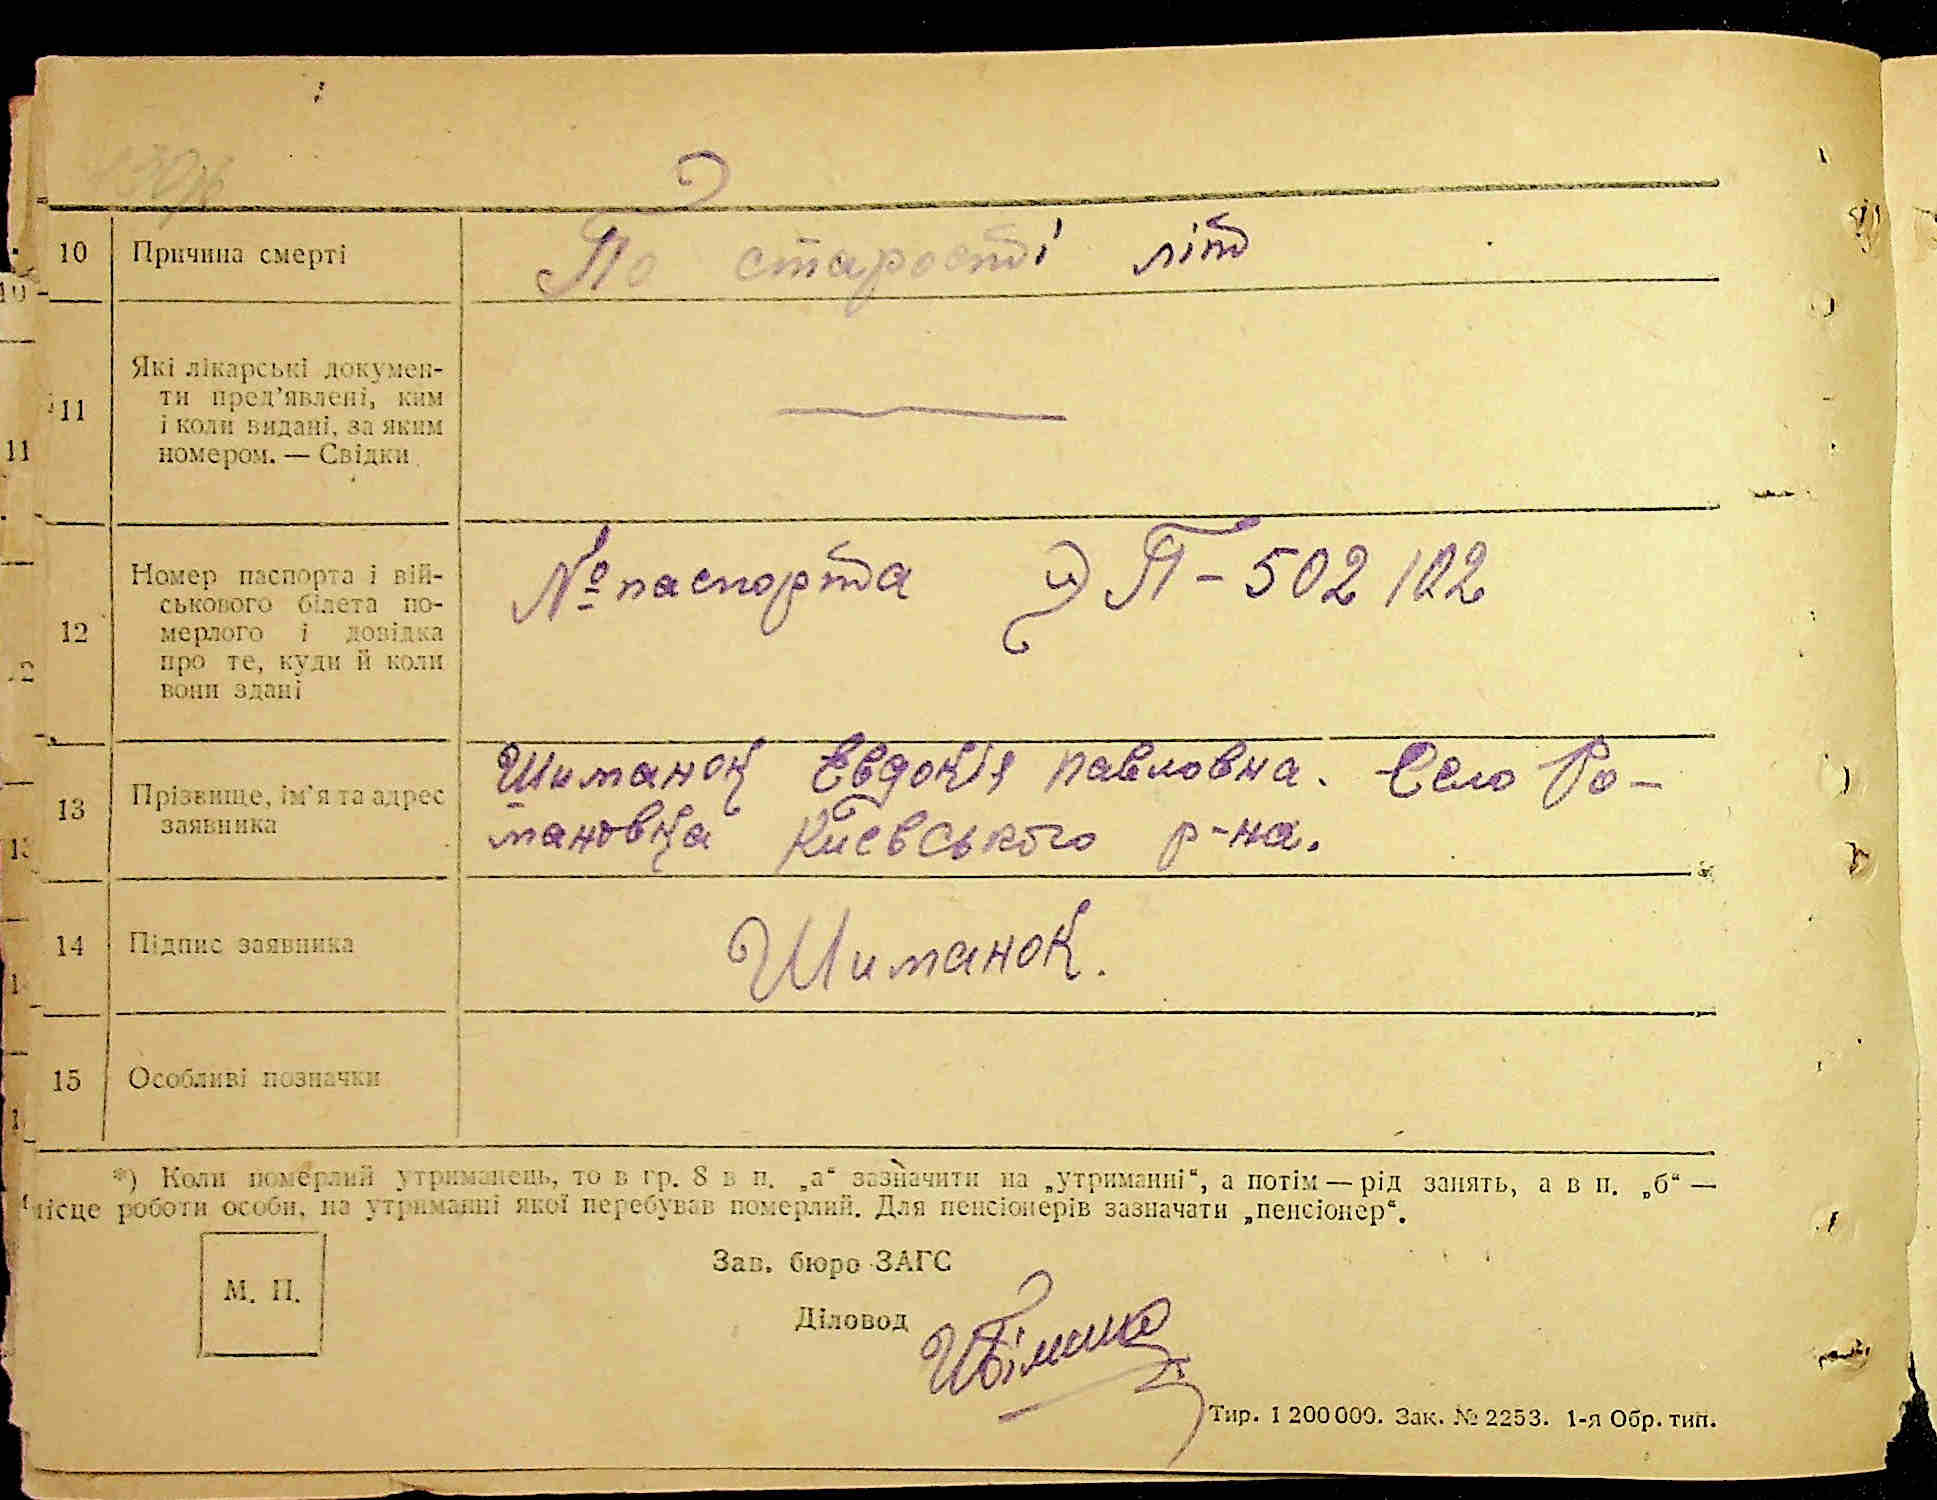 10 Причина смерті По старості літ
11 Які лікарські докумен-
ти пред’явлені, ким
і коли видані, за яким
номером. — Свідки
12 Номер паспорта і вій-
ськового білета по-
мерлого і довідка
про те, куди й коли
вони здані
№ паспорта ЭП - 502102
13 Прізвище, ім’я та адрес
заявника
Шиманок Евдокія Павловна. Село Ро-
мановка Киевського р-на.
14 Підпис заявника Шиманок.
15 Особливі позначки
*) Коли померлий утриманець, то в гр. 8 в п. „а“ зазначити на „утриманні“, а потім — рід занять, а в п. „б“ —
місце роботи особи, на утриманні якої перебував померлий. Для пенсіонерів зазначати „пенсіонер“.
М. П.
Зав. бюро ЗАГС
Діловод
Тир. 1 200 000. Зак. № 2253. 1-я Обр. тип.